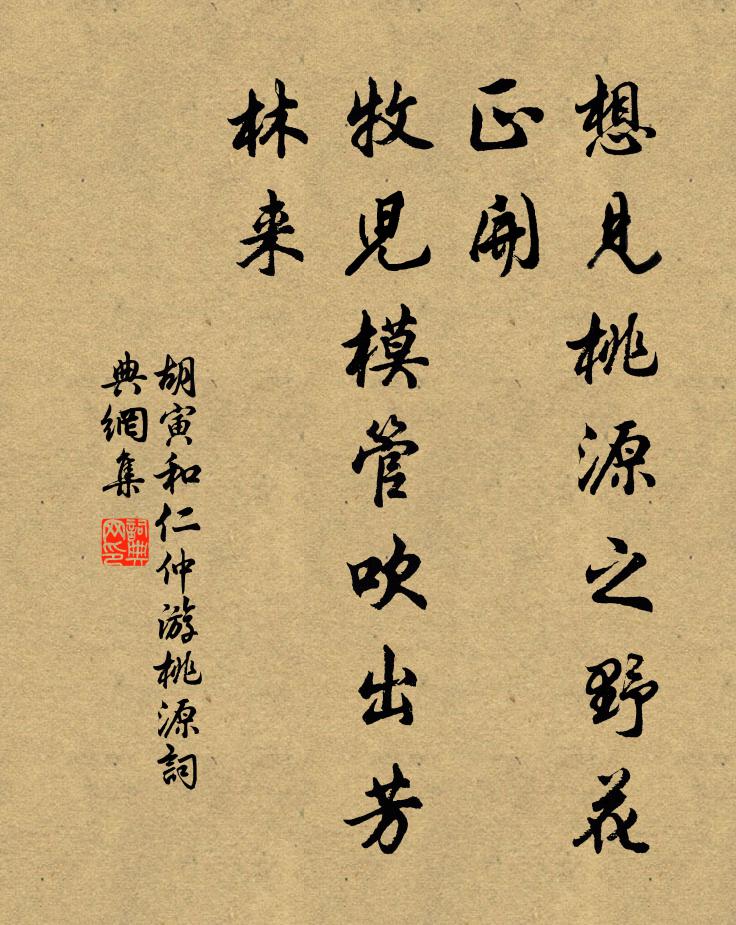 想見桃源之野花
正開
牧児模管吹出芳
林来
胡寅和仁仲游桃源詞
典網集
詞典
网印